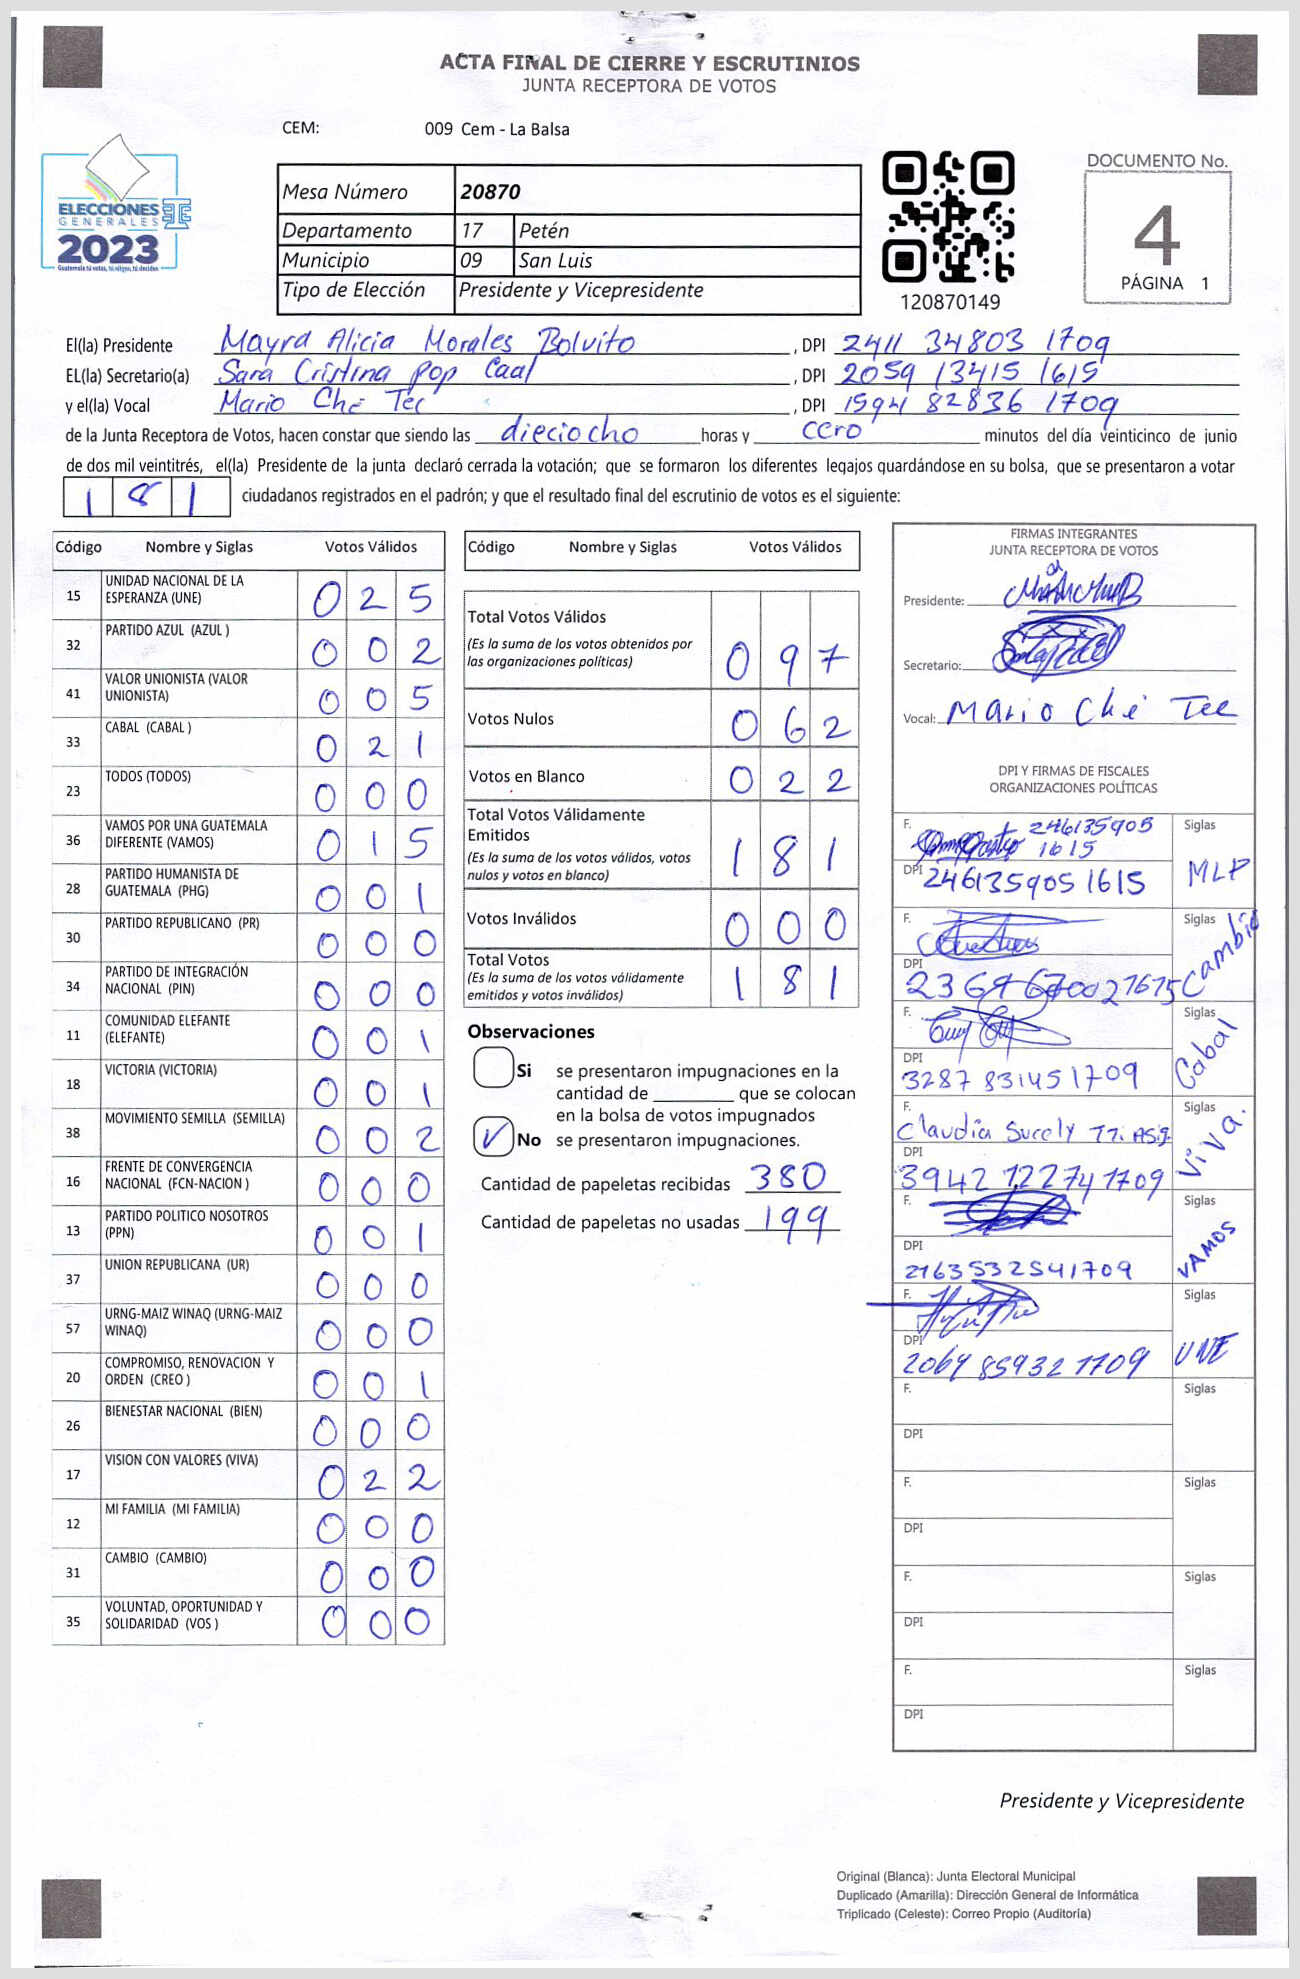 ACTA FINAL DE CIERRE Y ESCRUTINIOS
JUNTA RECEPTORA DE VOTOS
CEM: 009 Cem - La Balsa
ELECCIONES
GENERALES
2023
Guatemala tú votas, tú eliges, tú decides
Mesa Número 20870
Departamento 17 Petén
Municipio 09 San Luis
Tipo de Elección Presidente y Vicepresidente
120870149
DOCUMENTO No.
4
PÁGINA 1
El(la) Presidente Mayra Alicia Morales Bolvito , DPI 2411 34803 1709
EL(la) Secretario(a) Sara Cristina Pop Caal , DPI 2059 13415 1615
y el(la) Vocal Mario Ché Tec , DPI 1594 82836 1709
de la Junta Receptora de Votos, hacen constar que siendo las dieciocho horas y cero minutos del día veinticinco de junio
de dos mil veintitrés, el(la) Presidente de la junta declaró cerrada la votación; que se formaron los diferentes legajos guardándose en su bolsa, que se presentaron a votar
181 ciudadanos registrados en el padrón; y que el resultado final del escrutinio de votos es el siguiente:
Código Nombre y Siglas Votos Válidos
15 UNIDAD NACIONAL DE LA ESPERANZA (UNE) 0 2 5
32 PARTIDO AZUL (AZUL ) 0 0 2
41 VALOR UNIONISTA (VALOR UNIONISTA) 0 0 5
33 CABAL (CABAL ) 0 2 1
23 TODOS (TODOS) 0 0 0
36 VAMOS POR UNA GUATEMALA DIFERENTE (VAMOS) 0 1 5
28 PARTIDO HUMANISTA DE GUATEMALA (PHG) 0 0 1
30 PARTIDO REPUBLICANO (PR) 0 0 0
34 PARTIDO DE INTEGRACIÓN NACIONAL (PIN) 0 0 0
11 COMUNIDAD ELEFANTE (ELEFANTE) 0 0 1
18 VICTORIA (VICTORIA) 0 0 1
38 MOVIMIENTO SEMILLA (SEMILLA) 0 0 2
16 FRENTE DE CONVERGENCIA NACIONAL (FCN-NACION ) 0 0 0
13 PARTIDO POLITICO NOSOTROS (PPN) 0 0 1
37 UNION REPUBLICANA (UR) 0 0 0
57 URNG-MAIZ WINAQ (URNG-MAIZ WINAQ) 0 0 0
20 COMPROMISO, RENOVACION Y ORDEN (CREO ) 0 0 1
26 BIENESTAR NACIONAL (BIEN) 0 0 0
17 VISION CON VALORES (VIVA) 0 2 2
12 MI FAMILIA (MI FAMILIA) 0 0 0
31 CAMBIO (CAMBIO) 0 0 0
35 VOLUNTAD, OPORTUNIDAD Y SOLIDARIDAD (VOS ) 0 0 0
Código Nombre y Siglas Votos Válidos
Total Votos Válidos
(Es la suma de los votos obtenidos por
las organizaciones políticas) 0 9 7
Votos Nulos 0 6 2
Votos en Blanco 0 2 2
Total Votos Válidamente
Emitidos
(Es la suma de los votos válidos, votos
nulos y votos en blanco) 1 8 1
Votos Inválidos 0 0 0
Total Votos
(Es la suma de los votos válidamente
emitidos y votos inválidos) 1 8 1
Observaciones
Si se presentaron impugnaciones en la
cantidad de ________ que se colocan
en la bolsa de votos impugnados
No se presentaron impugnaciones.
Cantidad de papeletas recibidas 380
Cantidad de papeletas no usadas 199
FIRMAS INTEGRANTES
JUNTA RECEPTORA DE VOTOS
Presidente:
Secretario:
Vocal: Mario Ché Tec
DPI Y FIRMAS DE FISCALES
ORGANIZACIONES POLÍTICAS
F. 246135905 Siglas
1615
DPI 2461359051615 MLP
F. Siglas
DPI Cambio
F. Siglas
DPI Cabal
3287 83145 1709
F. Siglas
Claudia Sucely
DPI Viva.
3942 12274 1709
F. Siglas
DPI VAMOS
2163532541709
F. Siglas
DPI UNE
2064 85932 1709
F. Siglas
DPI
F. Siglas
DPI
F. Siglas
DPI
F. Siglas
DPI
Presidente y Vicepresidente
Original (Blanca): Junta Electoral Municipal
Duplicado (Amarilla): Dirección General de Informática
Triplicado (Celeste): Correo Propio (Auditoría)